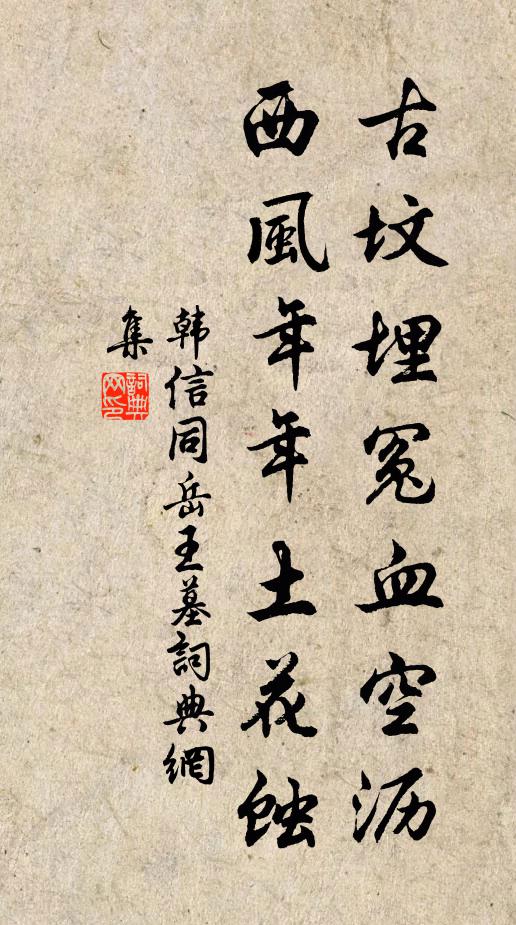 古坟埋冤血空沥
西風年年土花蝕
韩信同岳王墓詞典網
集
詞典
网印